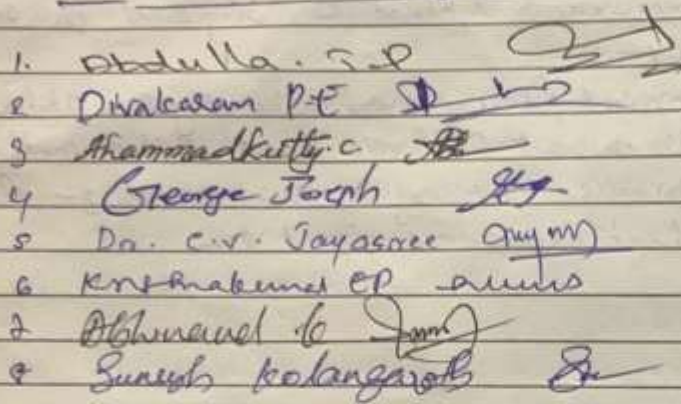 1. Abdulla. T.P
2 Divakaran P.E
3 Ahammadkutty. C
4 George Joseph
5 Dr. C.V. Jayasree
6 Krishnakumar EP
7 Abhinand K
8 Suresh Kolangaroth